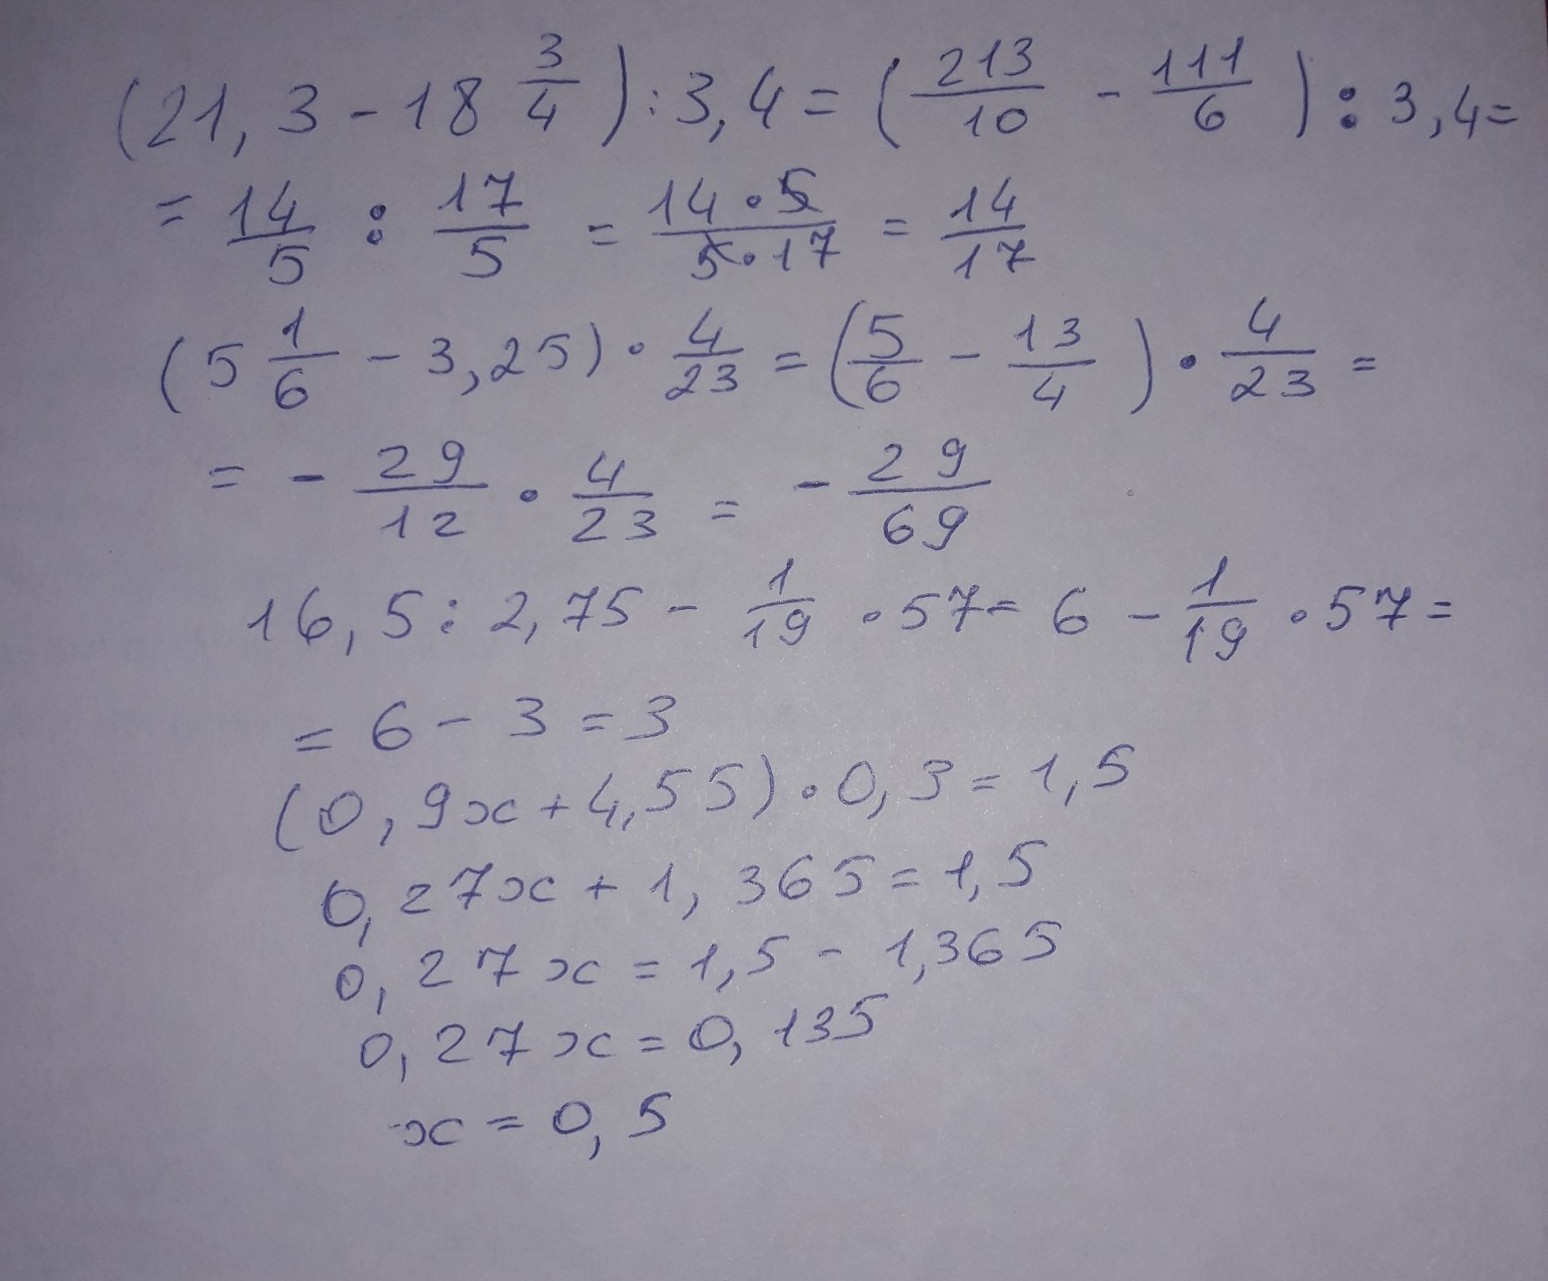 (21,3 - 18 3/4) : 3,4 = (213/10 - 111/6) : 3,4 =
= 14/5 : 17/5 = 14·5/5·17 = 14/17
(5 1/6 - 3,25) · 4/23 = (5/6 - 13/4) · 4/23 =
= - 29/12 · 4/23 = - 29/69
16,5 : 2,75 - 1/19 · 57 = 6 - 1/19 · 57 =
= 6 - 3 = 3
(0,9x + 4,55) · 0,3 = 1,5
0,27x + 1,365 = 1,5
0,27x = 1,5 - 1,365
0,27x = 0,135
x = 0,5